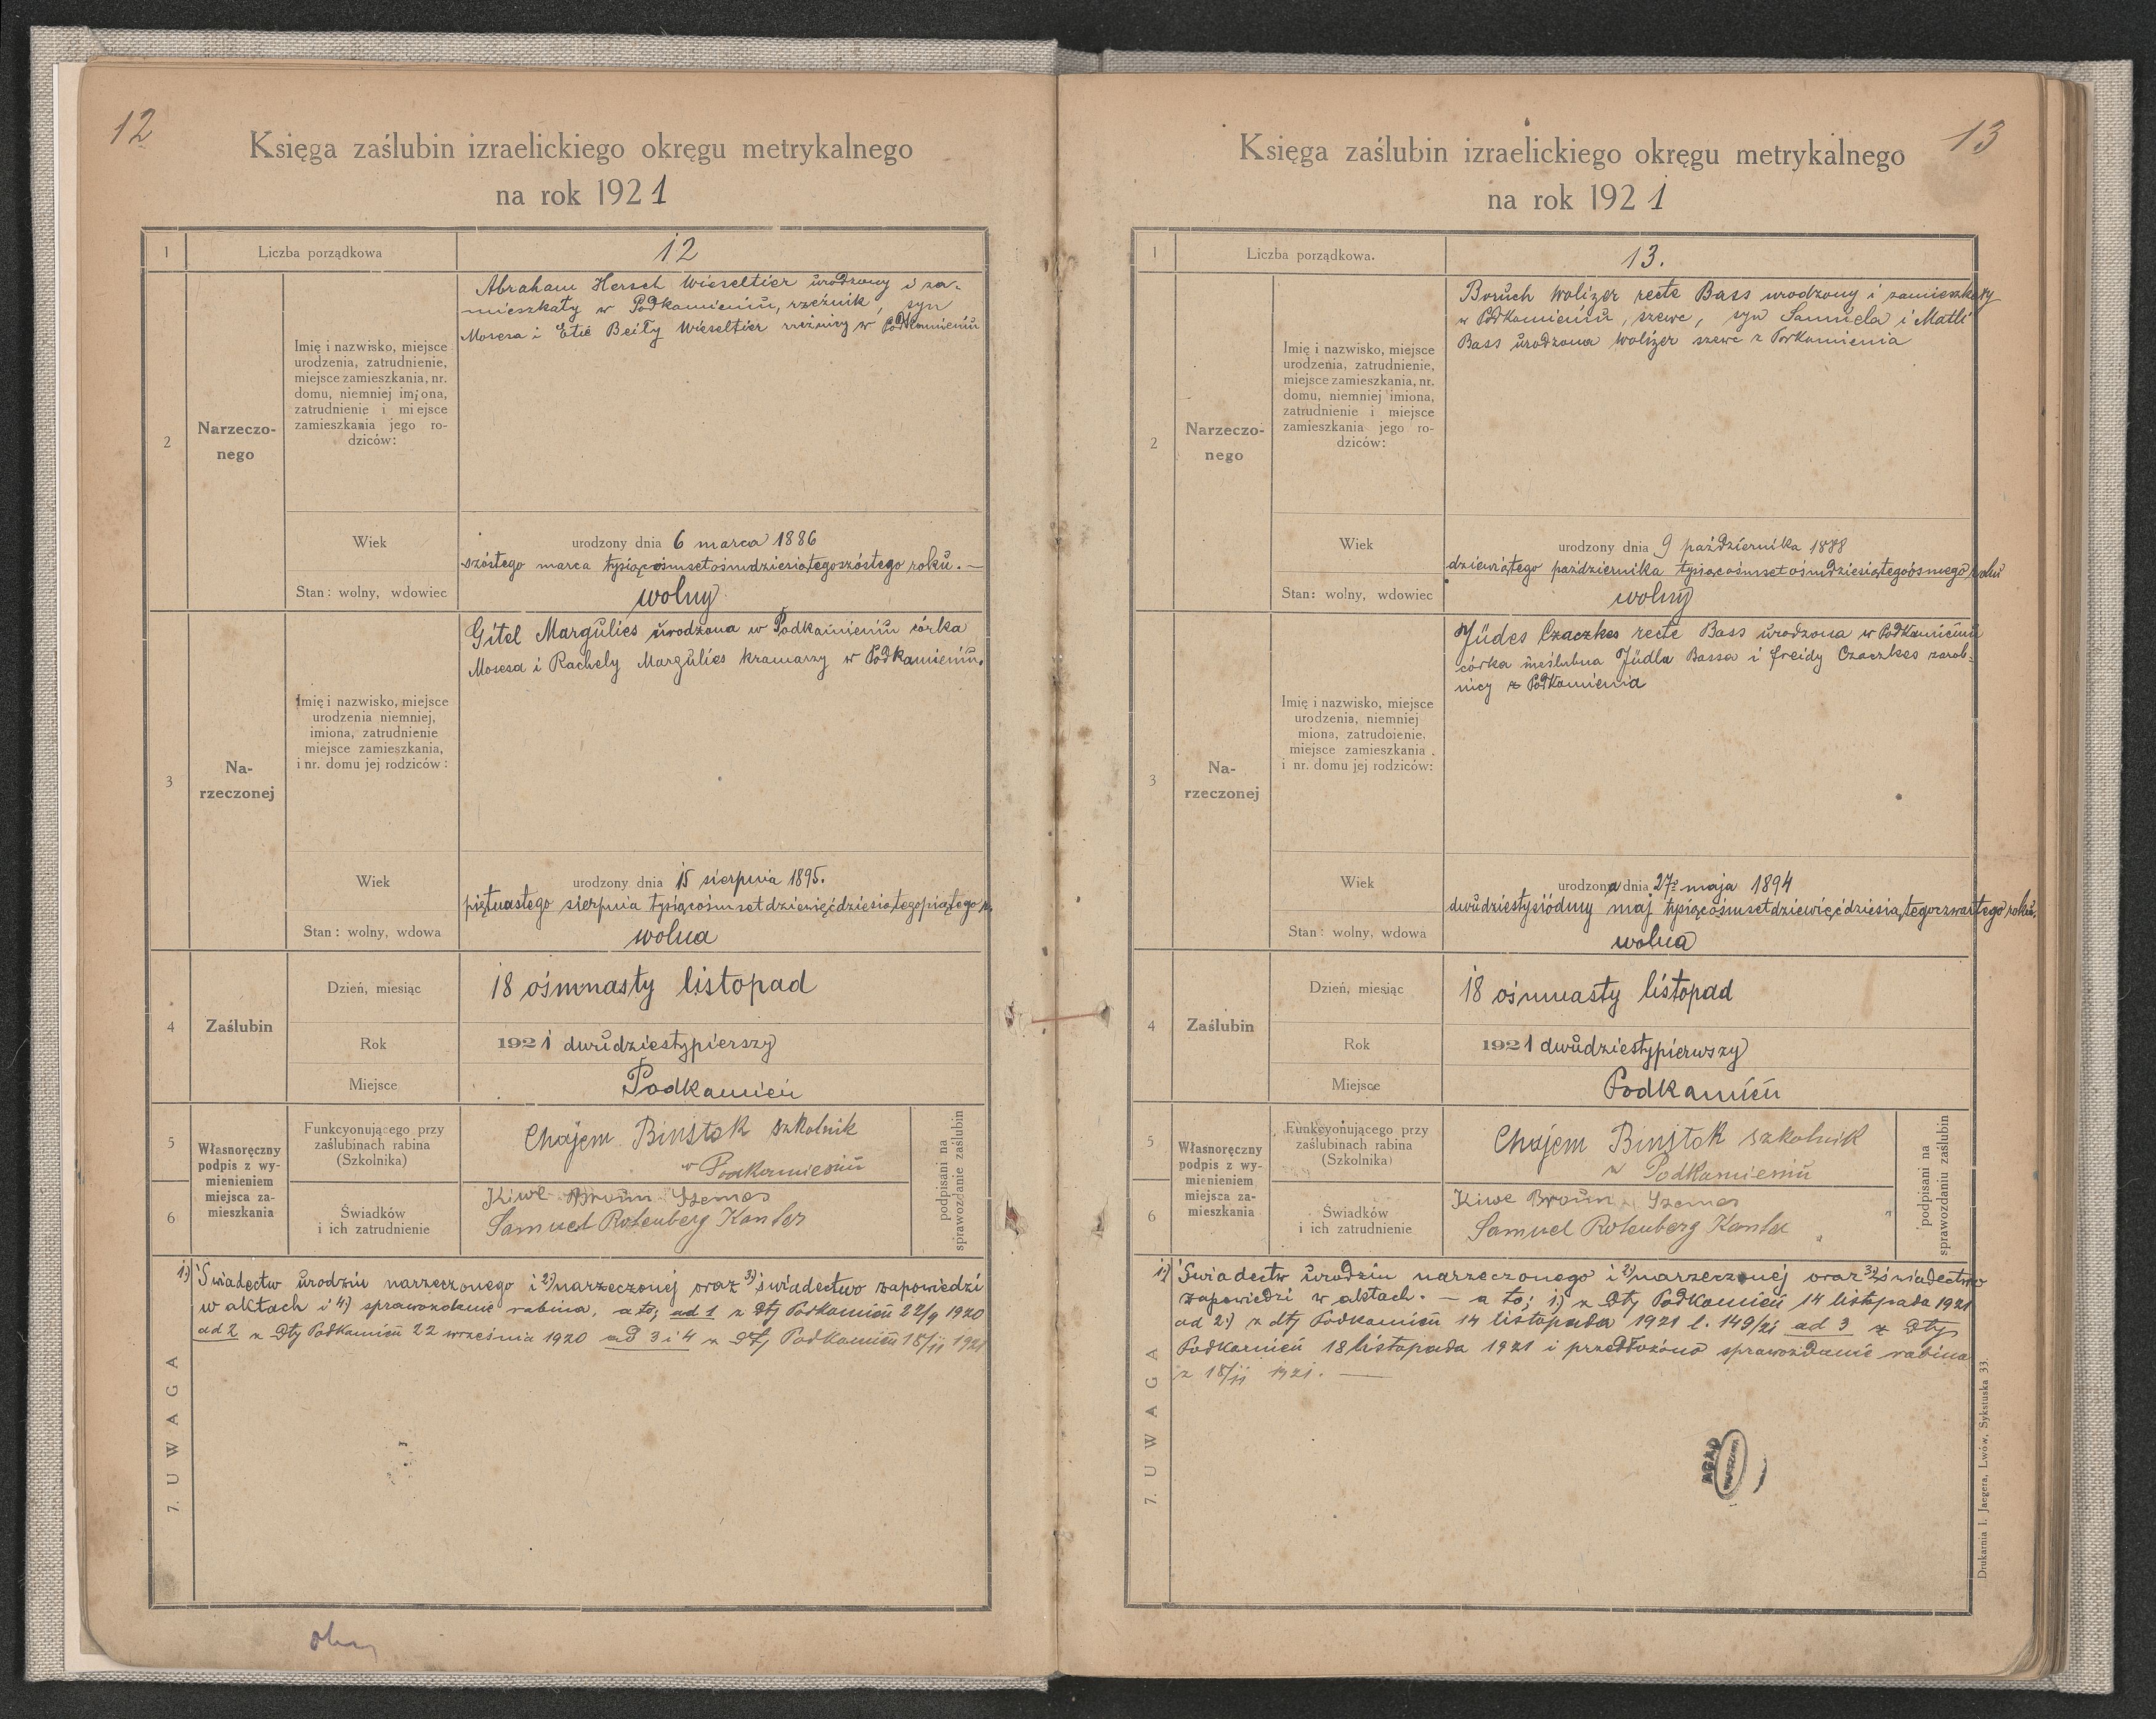 12
Księga zaślubin izraelickiego okręgu metrykalnego
na rok 1921
1
Liczba porządkowa
12
2
Narzeczo-
nego
Imię i nazwisko, miejsce
urodzenia, zatrudnienie,
miejsce zamieszkania, nr.
domu, niemniej imiona,
zatrudnienie i miejsce
zamieszkania jego ro-
dziców:
Abraham Hersch Wieseltier urodzony i za-
mieszkały w Podkamieniu, rzeźnik, syn
Mosesa i Etie Beiły Wieseltier w Podkamieniu
Wiek
urodzony dnia 6 marca 1886
szóstego marca tysiącośmsetośmdziesiątegoszóstego roku. —
Stan: wolny, wdowiec
wolny
3
Na-
rzeczonej
Imię i nazwisko, miejsce
urodzenia niemniej,
imiona, zatrudnienie
miejsce zamieszkania,
i nr. domu jej rodziców:
Gitel Margulies urodzona w Podkamieniu córka
Mosesa i Rachely Margulies kramarzy w Podkamieniu.
Wiek
urodzony dnia 15 sierpnia 1895.
piętnastego sierpnia tysiącośmsetdziewięćdziesiątegopiątego r.
Stan: wolny, wdowa
wolna
4
Zaślubin
Dzień, miesiąc
18 ośmnasty listopad
Rok
1921 dwudziestypierszy
Miejsce
Podkamień
5
6
Własnoręczny
podpis z wy-
mienieniem
miejsca za-
mieszkania
Funkcyonującego przy
zaślubinach rabina
(Szkolnika)
Chajem Binstok szkolnik
w Podkamieniu
Świadków
i ich zatrudnienie
Kiwe Braun Szames
Samuel Rotenberg Kantor
podpisani na
sprawozdanie zaślubin
7. UWAGA
1) Świadectw urodzin narzeczonego i 2) narzeczonej oraz 3) świadectwo zapowiedzi
w aktach i 4) sprawozdanie rabina, a to; ad 1 z dty Podkamień 22/9 1920
ad 2 z dty Podkamień 22 września 1920 ad 3 i 4 z dty Podkamień 18/11 1921
13
Księga zaślubin izraelickiego okręgu metrykalnego
na rok 1921
1
Liczba porządkowa.
13.
2
Narzeczo-
nego
Imię i nazwisko, miejsce
urodzenia, zatrudnienie,
miejsce zamieszkania, nr.
domu, niemniej imiona,
zatrudnienie i miejsce
zamieszkania jego ro-
dziców:
Boruch Wolizer recte Bass urodzony i zamieszkały
w Podkamieniu, szewc, syn Samuela i Matli
Bass urodzona Wolizer szewc z Podkamienia
Wiek
urodzony dnia 9 października 1888
dziewiątego października tysiącośmsetośmdziesiątegoósmego roku
Stan: wolny, wdowiec
wolny
3
Na-
rzeczonej
Imię i nazwisko, miejsce
urodzenia, niemniej
miona, zatrudoienie,
miejsce zamieszkania .
i nr. domu jej rodziców:
Jüdes Czaczkes recte Bass urodzona w Podkamieniu
córka nieślubna Jüdla Bassa i Freidy Czaczkes zarob-
nicy z Podkamienia
Wiek
urodzona dnia 27º maja 1894
dwudziestysiódmy maj tysiącośmsetdziewięćdziesiątegoczwartego roku.
Stan: wolny, wdowa
wolna
4
Zaślubin
Dzień, miesiąc
18 ośmnasty listopad
Rok
1921 dwudziestypierwszy
Miejsce
Podkamień
5
6
Własnoręczny
podpis z wy-
mienieniem
miejsca za-
mieszkania
Funkcyonującego przy
zaślubinach rabina
(Szkolnika)
Chajem Binstok szkolnik
w Podkamieniu
Świadków
i ich zatrudnienie
Kiwe Braun Szames
Samuel Rotenberg Kantor
podpisani na
sprawozdaniu zaślubin
7. UWAGA
1) Świadectw urodzin narzeczonego i 2) narzeczonej oraz 3) świadectwo
zapowiedzi w aktach. — a to; 1) z dty Podkamień 14 listopada 1921
ad 2) z dty Podkamień 14 listopada 1921 l. 149/21 ad 3 z dty
Podkamień 18 listopada 1921 i przedłożono sprawozdanie rabina
z 18/11 1921. —
AGAD
WARSZAWA
Drukarnia I. Jaegera, Lwów, Sykstuska 33.